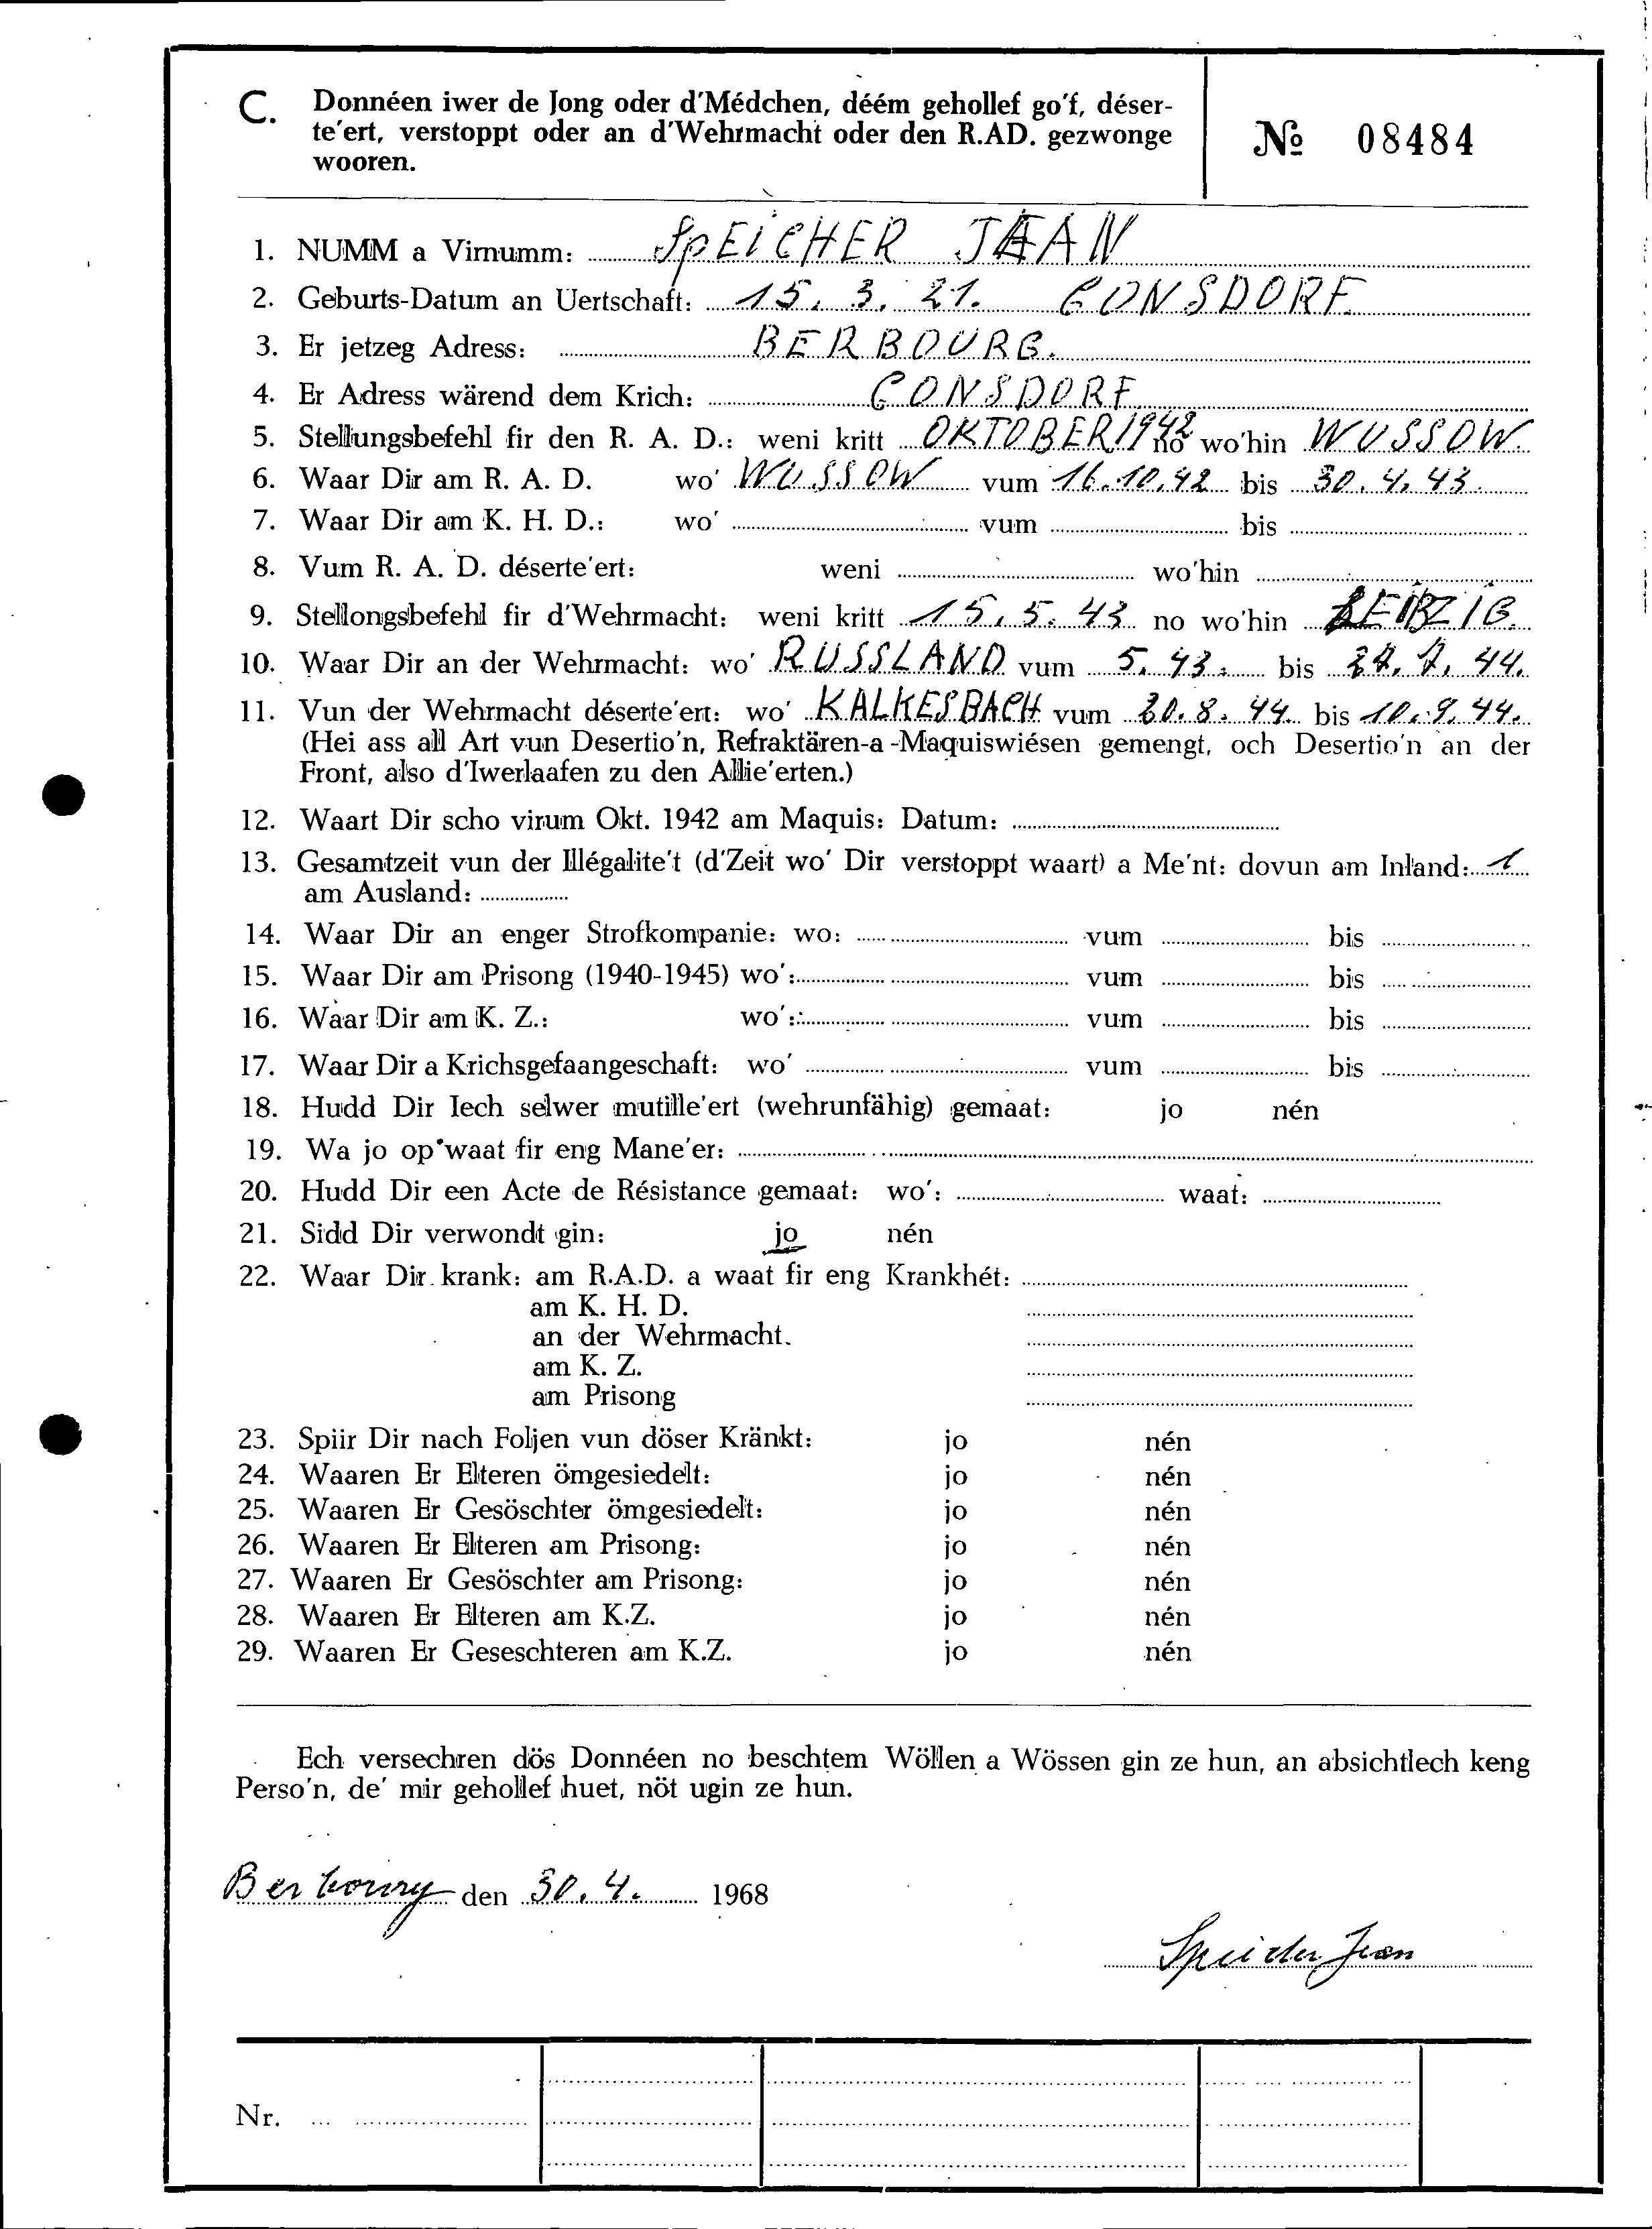 C. Donnéen iwer de Jong oder d'Médchen, déém gehollef go'f, déser-
te'ert, verstoppt oder an d'Wehrmacht oder den R.AD. gezwonge
wooren.
№ 08484
1. NUMM a Virnumm: SPEICHER JEAN
2. Geburts-Datum an Uertschaft: 15. 3. 21. CONSDORF
3. Er jetzeg Adress: BERBOURG.
4. Er Adress wärend dem Krich: CONSDORF
5. Stellungsbefehl fir den R. A. D.: weni kritt OKTOBER 1942 no wo'hin WUSSOW.
6. Waar Dir am R. A. D. wo' WUSSOW vum 16.10.42 bis 30.4.43.
7. Waar Dir am K. H. D.: wo' vum bis
8. Vum R. A. D. déserte'ert: weni wo'hin
9. Stellongsbefehl fir d'Wehrmacht: weni kritt 15.5.43 no wo'hin LEIBZIG.
10. Waar Dir an der Wehrmacht: wo' RUSSLAND vum 5.43. bis 44.
11. Vun der Wehrmacht déserte'ert: wo' KALKESBACH vum 20.8.44 bis 10.9.44.
(Hei ass all Art vun Desertio'n, Refraktären-a-Maquiswiésen gemengt, och Desertio'n an der
Front, also d'Iwerlaafen zu den Allie'erten.)
12. Waart Dir scho virum Okt. 1942 am Maquis: Datum:
13. Gesamtzeit vun der Illégalite't (d'Zeit wo' Dir verstoppt waart) a Me'nt: dovun am Inland: 1
am Ausland:
14. Waar Dir an enger Strofkompanie: wo: vum bis
15. Waar Dir am Prisong (1940-1945) wo': vum bis
16. Waar Dir am K. Z.: wo': vum bis
17. Waar Dir a Krichsgefaangeschaft: wo' vum bis
18. Hudd Dir Iech selwer mutille'ert (wehrunfähig) gemaat: jo nén
19. Wa jo op waat fir eng Mane'er:
20. Hudd Dir een Acte de Résistance gemaat: wo': waat:
21. Sidd Dir verwondt gin: jo nén
22. Waar Dir krank: am R.A.D. a waat fir eng Krankhét:
am K. H. D.
an der Wehrmacht.
am K. Z.
am Prisong
23. Spiir Dir nach Foljen vun döser Kränkt: jo nén
24. Waaren Er Elteren ömgesiedelt: jo nén
25. Waaren Er Gesöschter ömgesiedelt: jo nén
26. Waaren Er Elteren am Prisong: jo nén
27. Waaren Er Gesöschter am Prisong: jo nén
28. Waaren Er Elteren am K.Z. jo nén
29. Waaren Er Geseschteren am K.Z. jo nén
Ech versechren dös Donnéen no beschtem Wöllen a Wössen gin ze hun, an absichtlech keng
Perso'n, de' mir gehollef huet, nöt ugin ze hun.
Berbourg den 30.4. 1968
Speicher Jean
Nr.